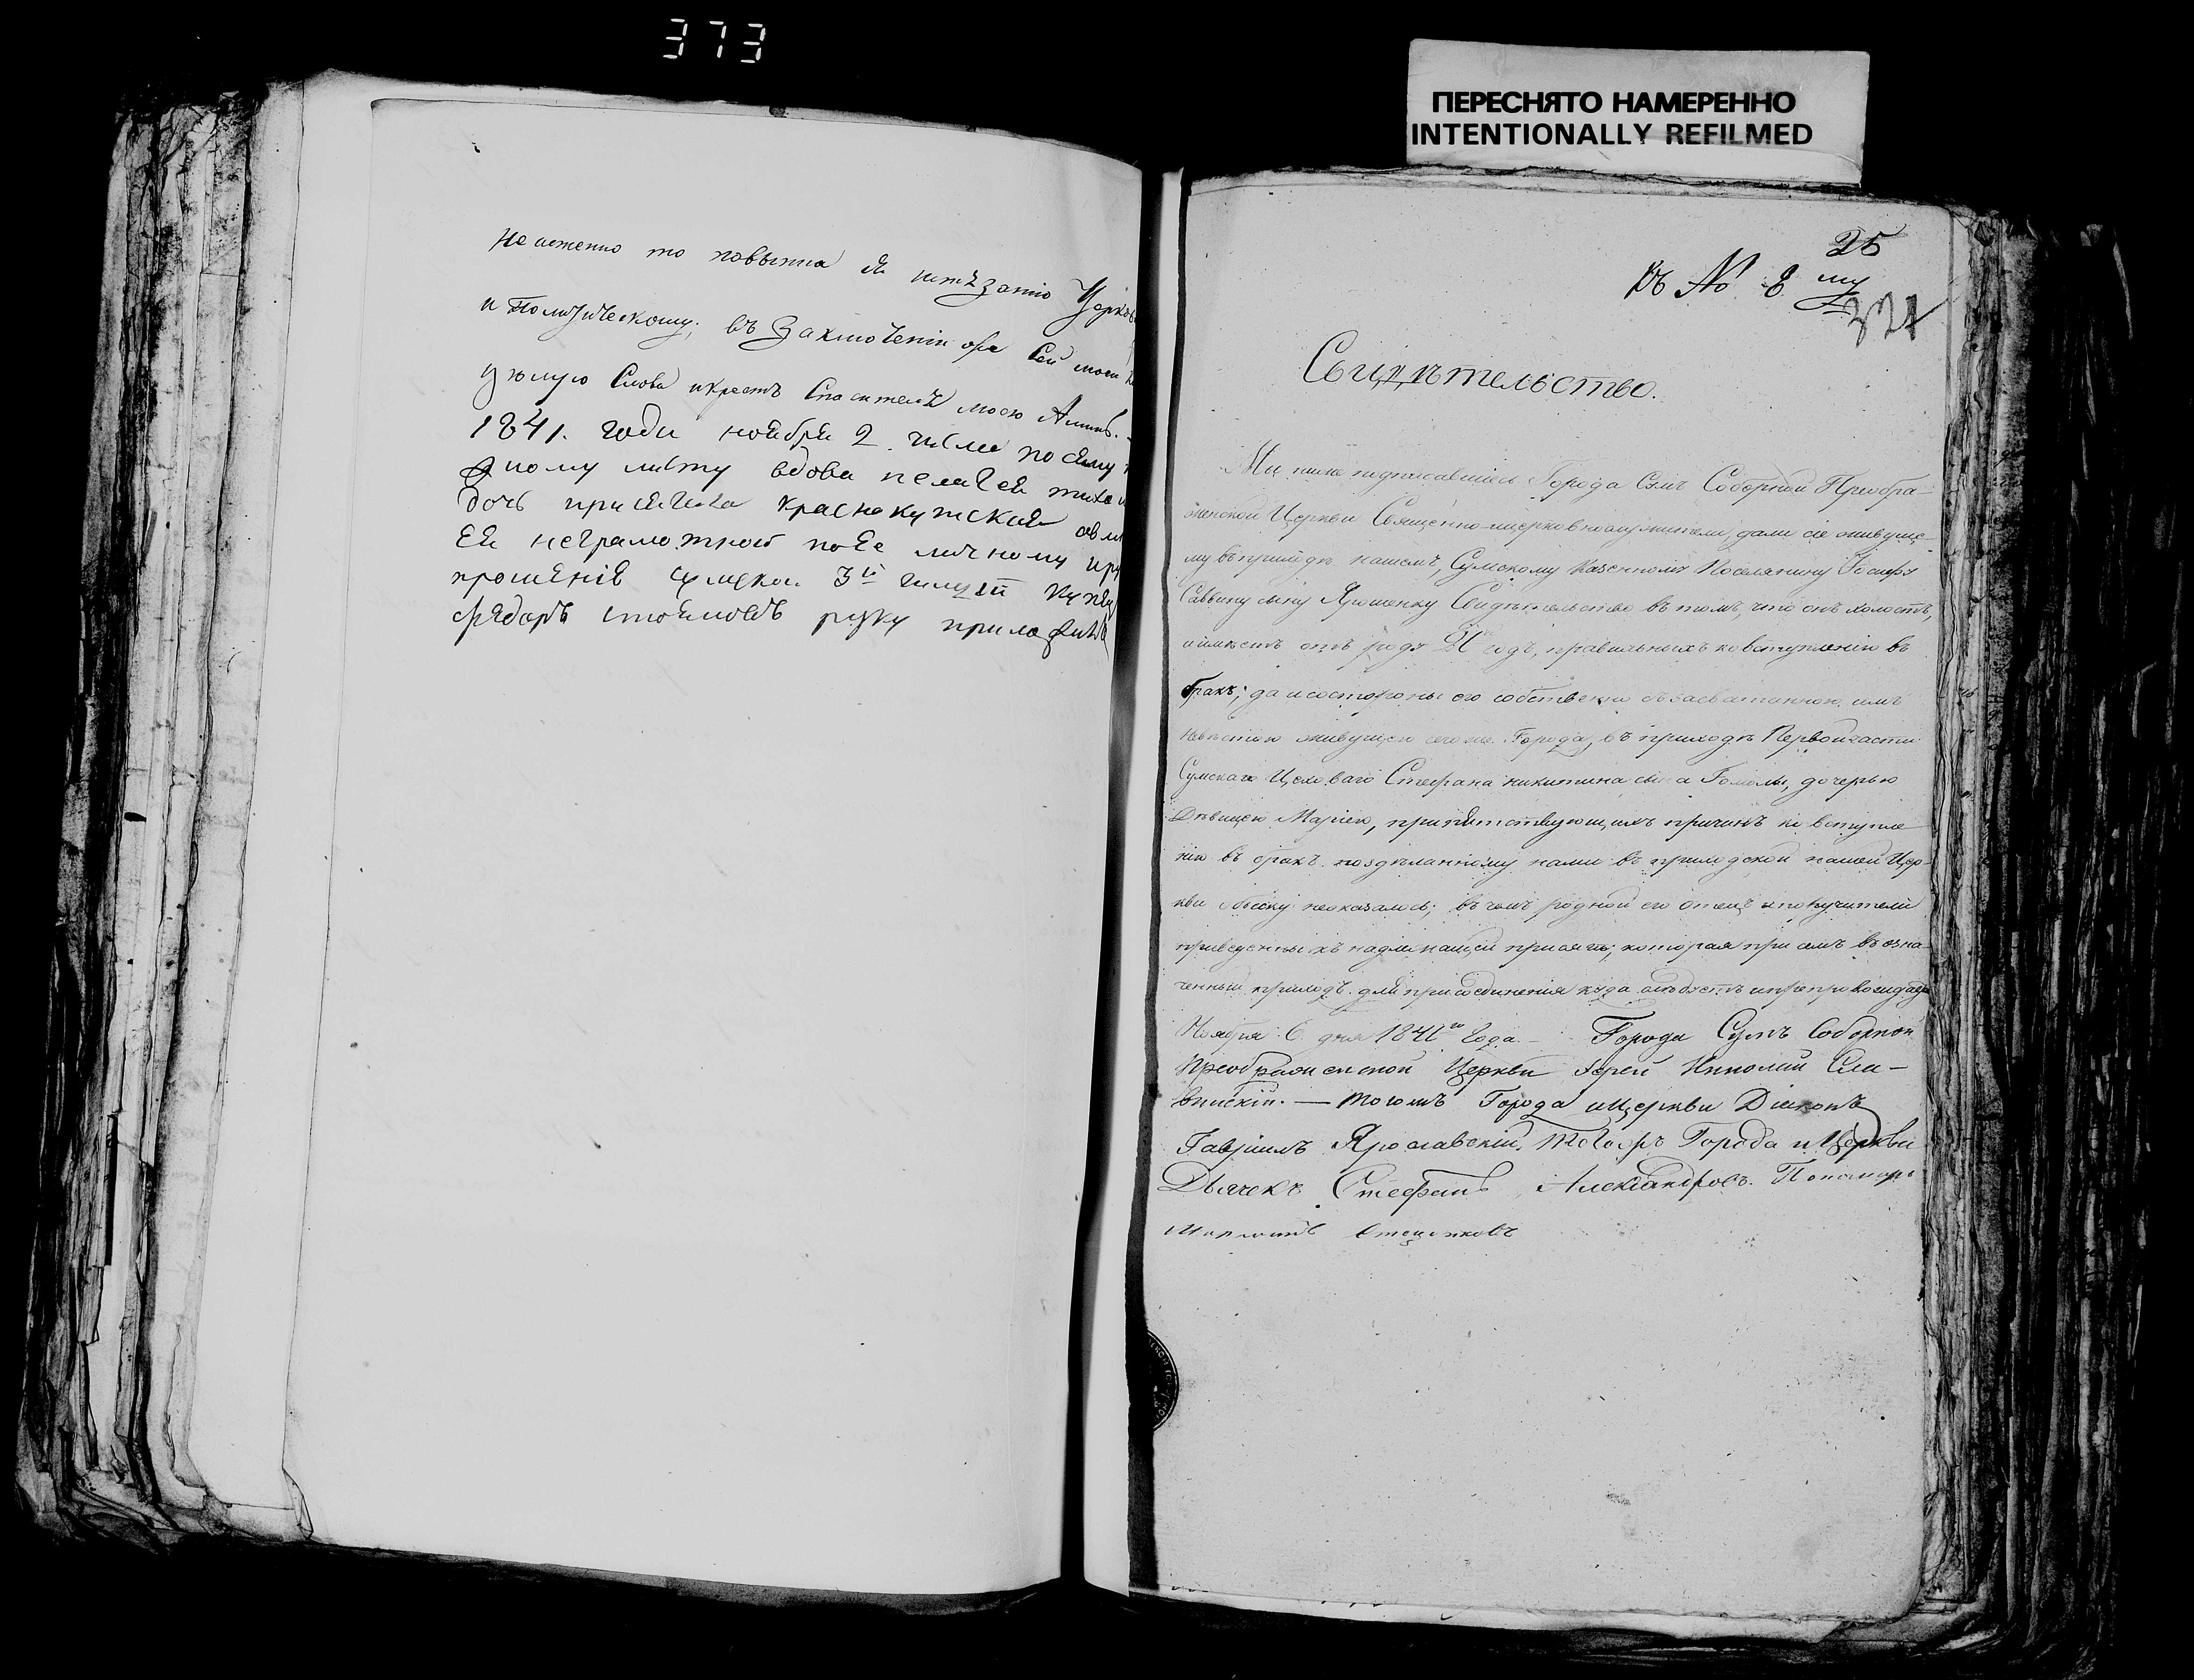 373
ПЕРЕСНЯТО НАМЕРЕННО
INTENTIONALLY REFILMED
то повинна я истѣзанію Церков
и Политическому; въ Заключеніи сей моей
Цѣлую Слова и Крестъ Спасителя моего Аминь.
1841. года ноября 2 числа по сему
листу вдова пелагея
дочь присягала краснокутская
ея неграмотной по ея личному
прошенію сумской 3й гилдіи
руку приложилъ
25
Къ № 8 му
321
Свидѣтельство.
Мы ниже подписавшіеся Города Сумъ Соборной Преобра-
женской Церкви Священно-ицерковнослужители, дали сіе живуще-
му въ приходѣ нашемъ, Сумскому Казенному Поселянину Іосифу
Саввину сыну Ярошенку Свидѣтельство въ томъ, что онъ холостъ,
и имѣетъ отъ роду 21 годъ, правильныхъ ко вступленію въ
бракъ; да и состороны его собственно съ засватанною имъ
невѣстою живущею сего же Города, въ приходѣ Первой части
Сумскаго Цеховаго Стефана никитина сына Гомолы, дочерью
Дѣвицею Маріею, препятствующихъ причинъ ко вступле
нію въ бракъ по здѣланному нами въ приходской нашей Цер-
кви обыску неоказалось; въ чемъ родной его отецъ и поручители
приведены къ надлежащей присягѣ; которая при семъ въ озна
ченный приходъ для присоединения куда слѣдуетъ и препровождается
Ноября 6 дня 1841го Года. — Города Сумъ Соборной
Преображенской Церкви Іерей Николай Сла-
винскій. — Тогожъ Города и Церкви Діаконъ
Гавріилъ Ярославскій. Тогожъ Города и Церкви
Дьячекъ Стефанъ Александровъ. Пономарь